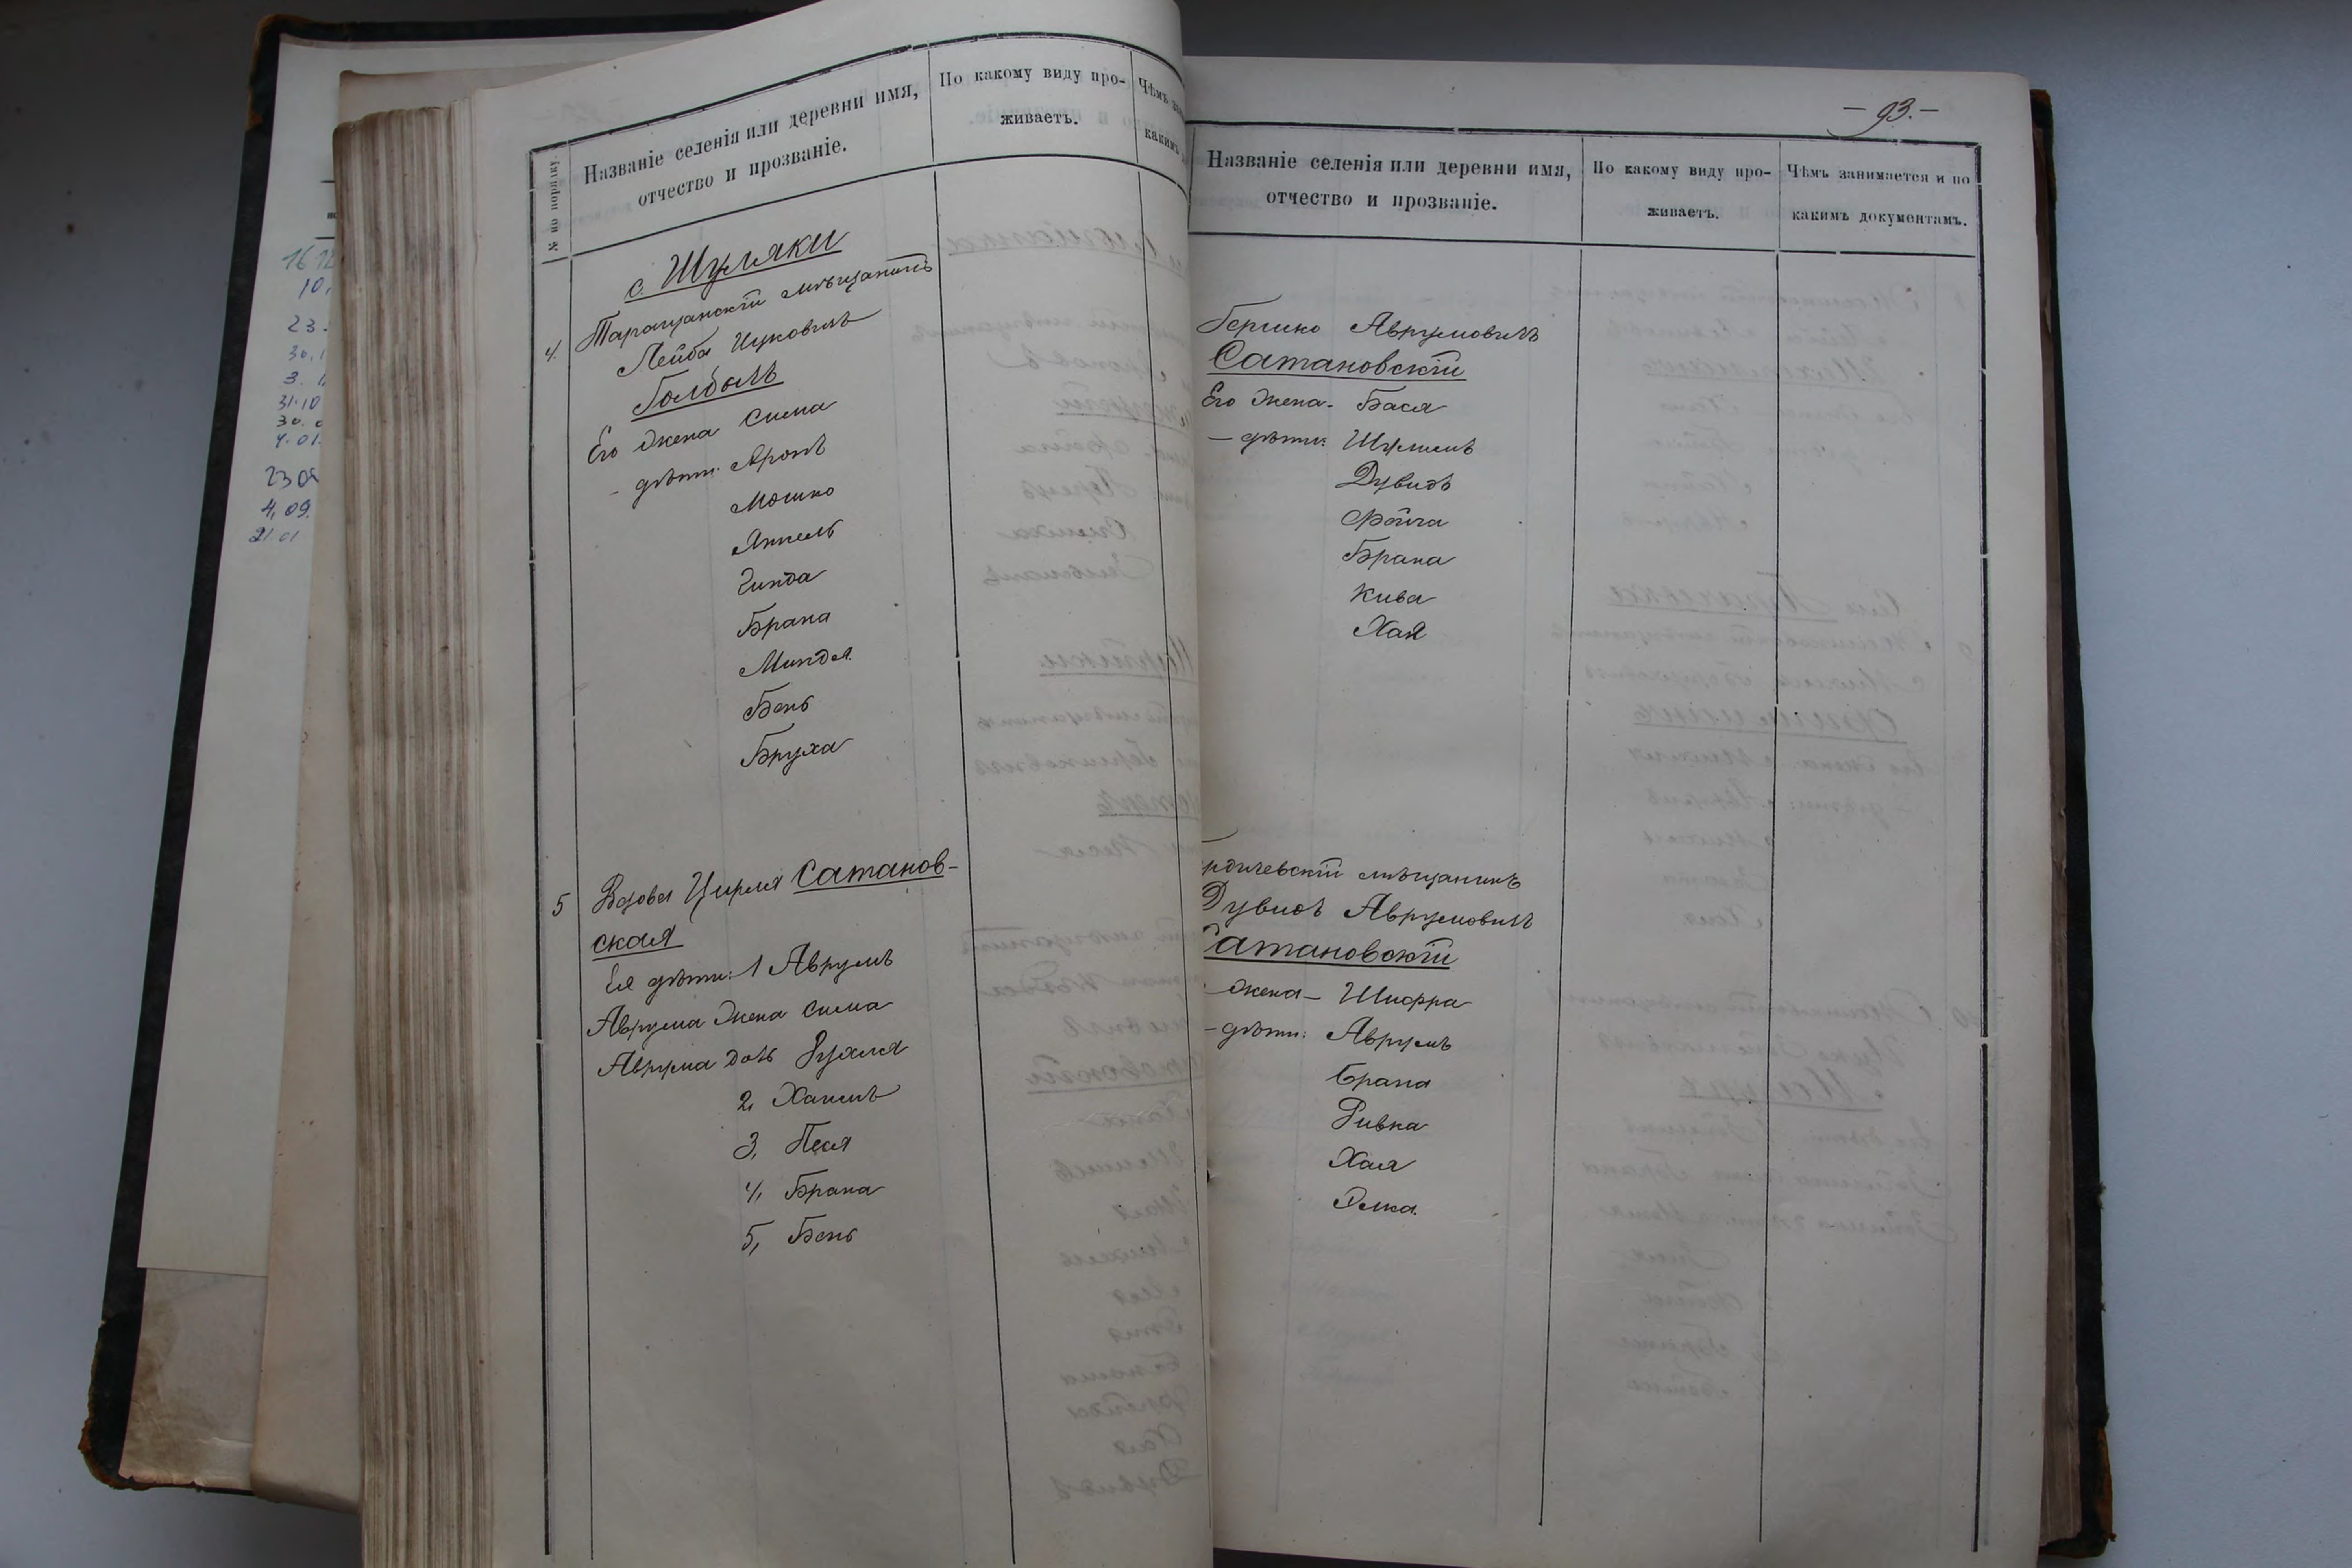 № по порядку.
Названіе селенія или деревни имя,
отчество и прозваніе.
По какому виду про-
живаетъ.
Чѣмъ
какимъ
с. Шуляки
4. Таращанскій мѣщанинъ
Лейба Ицковичъ
Голбылъ
Его жена Сима
- дѣти: Аронъ
Мошко
Янкель
Гинда
Брана
Миндя
Бень
Бруха
5 Вдова Цирля Сатанов-
ская
Ея дѣти: 1 Аврумъ
Аврума жена Сима
Аврума дочь Рухля
2, Хаимъ
3, Песя
4, Брана
5, Бень
- 93. -
Названіе селенія или деревни имя,
отчество и прозваніе.
По какому виду про-
живаетъ.
Чѣмъ занимается и по
какимъ документамъ.
Бершко Аврумовичъ
Сатановскій
Его жена - Бася
- дѣти: Шулимъ
Дувидъ
Фойга
Брана
Кива
Хая
рдичевскій мѣщанинъ
Дувидъ Аврумовичъ
Сатановскій
жена - Шифра
- дѣти: Аврумъ
Брана
Ривка
Хая
Элка.
16 12
10.
23.
30. 1
3. 1
31.10
30. 0
4.01.
23 09
4. 09.
21 01